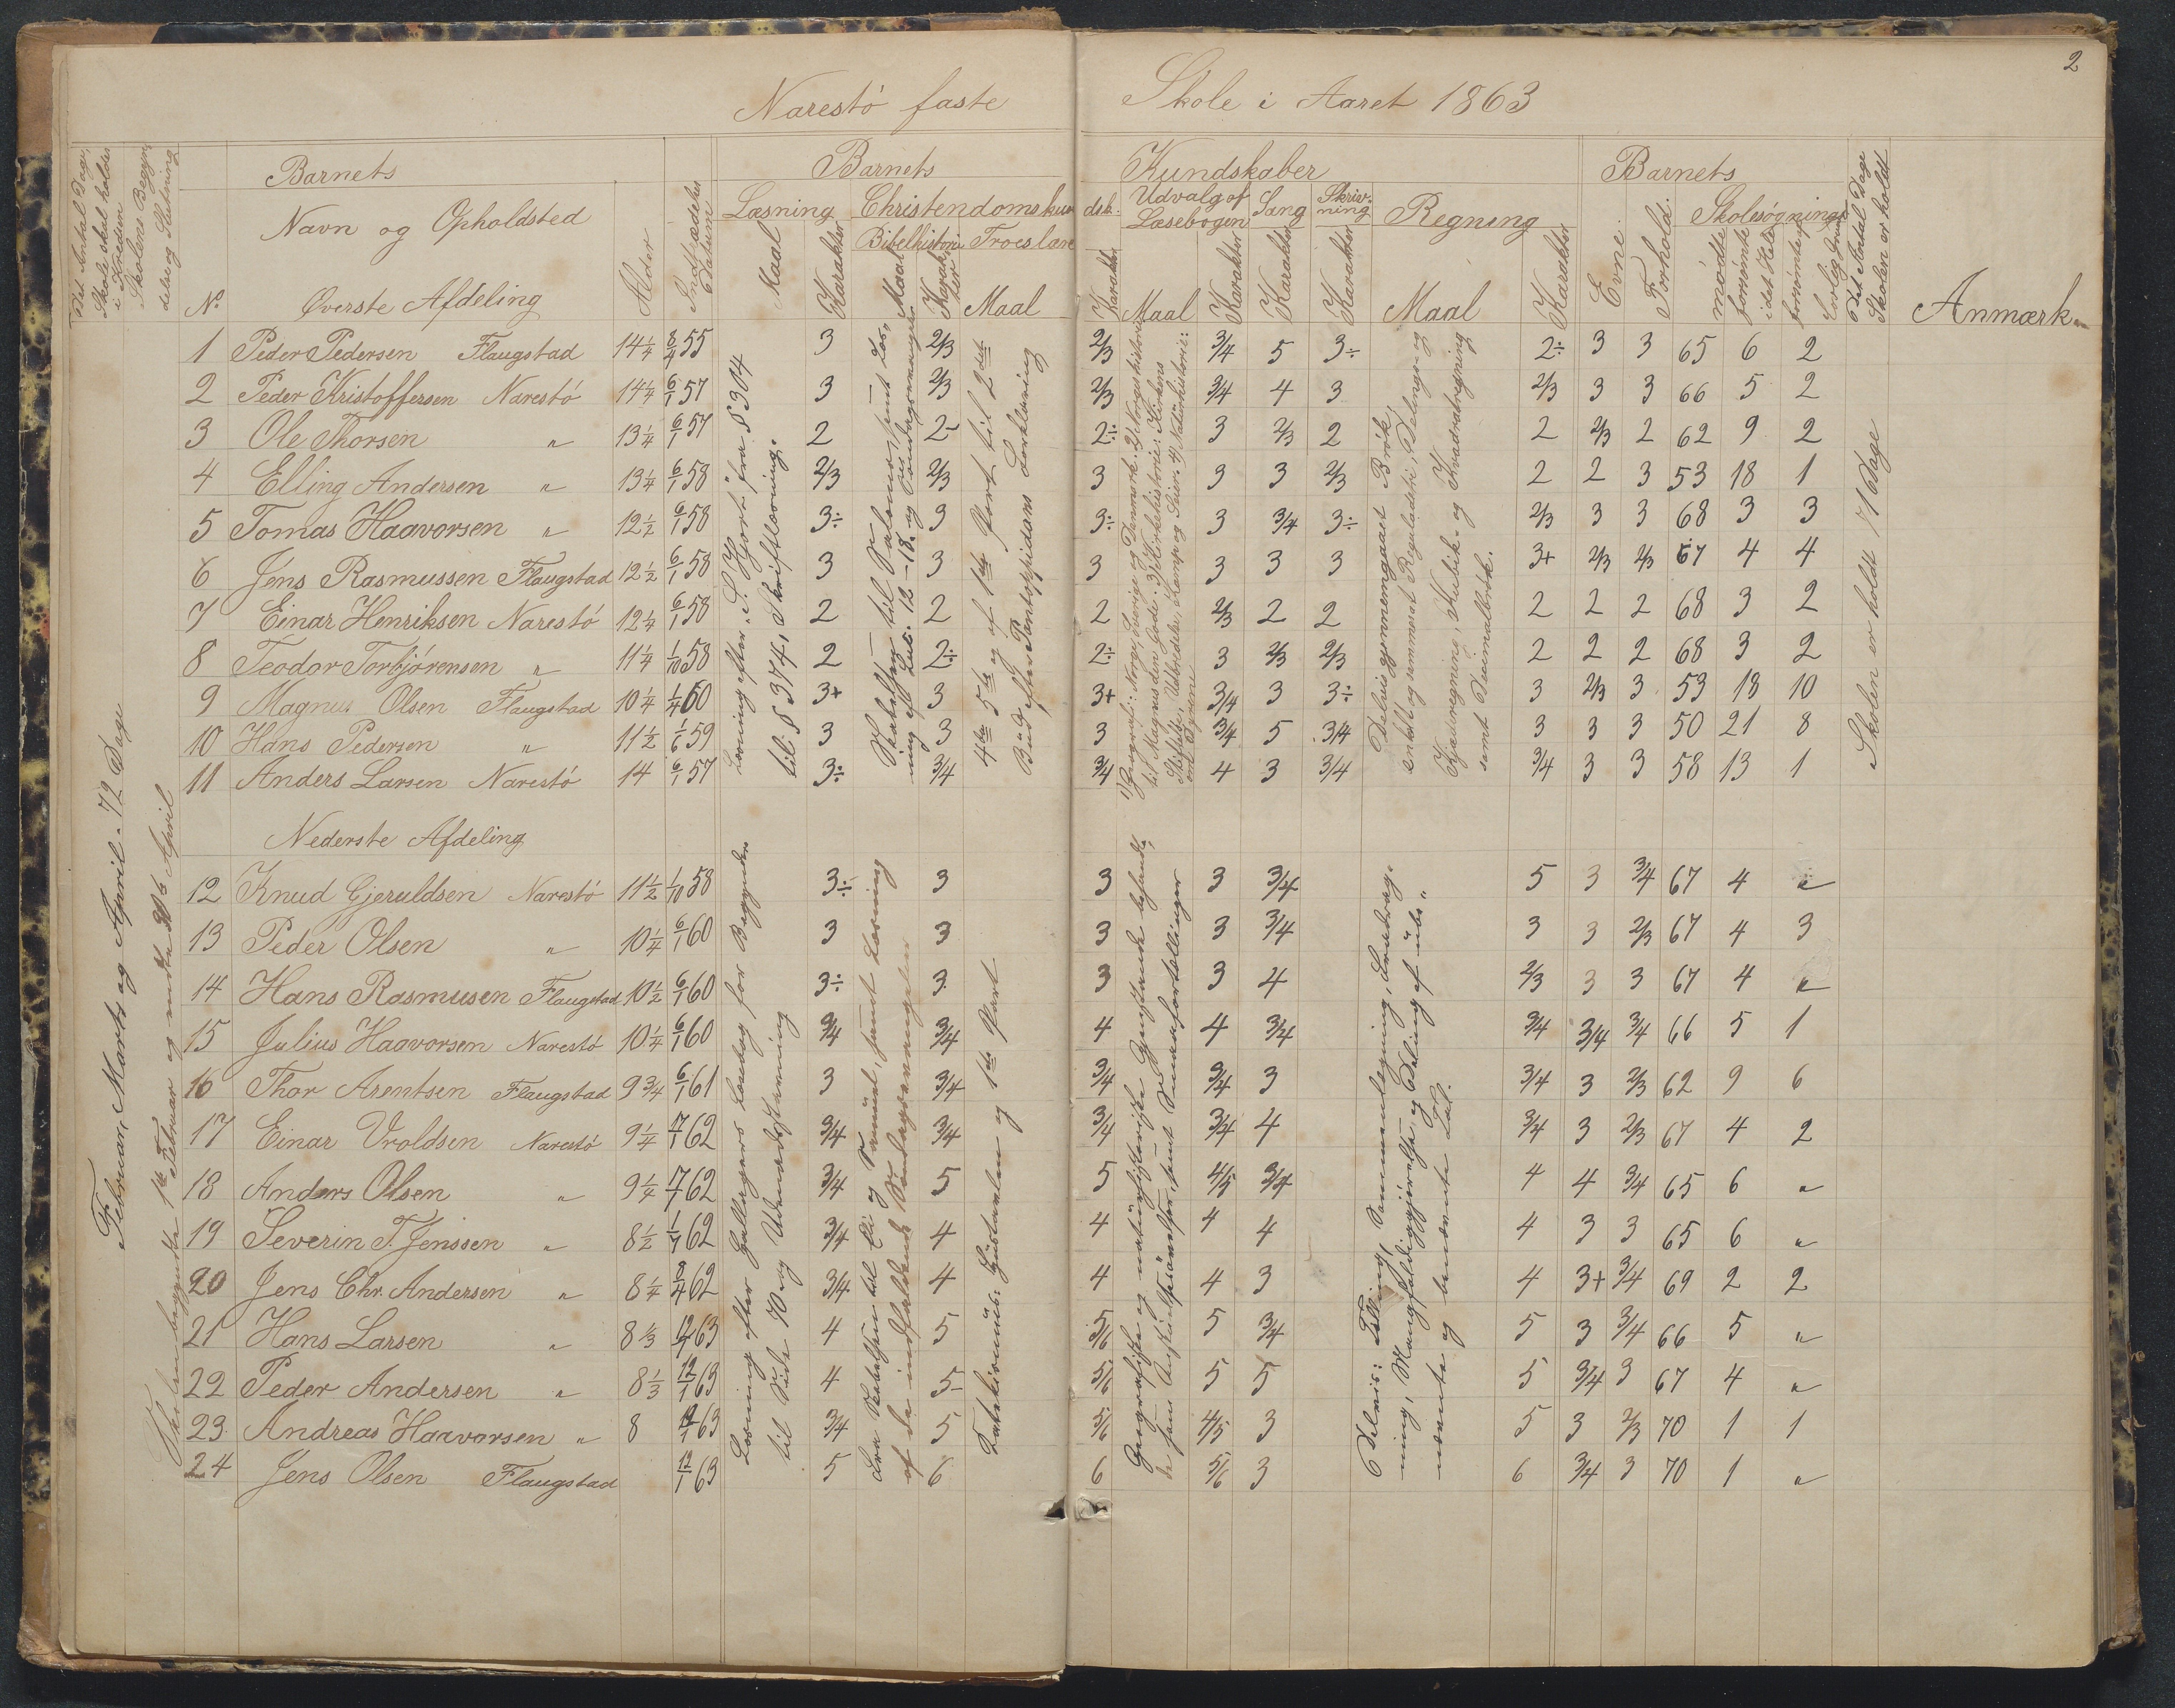 2
Narestö faste Skole i Aaret 1863
Det Antal Dage, Skole skal holdes i Kredsen
Skolens Begyndelse og Slutning
Barnets
Navn og Opholdsted
No
Øverste Afdeling
Alder
Indtrædelses Datum
Barnets Kundskaber
Læsning
Maal
Karakter
Christendomskundsk.
Bibelhistorie
Maal
Karakter
Troeslære
Maal
Karakter
Udvalg af Læsebogen
Maal
Karakter
Sang
Karakter
Skrivning
Karakter
Regning
Maal
Karakter
Barnets
Evne.
Forhold.
Skolesøgning
mödte
forsömte i det Hele
forsömte af lovlig Grund
Det Antal Dage Skolen er holdt
Anmærk.
1 Peder Pedersen Flaugstad 14¼ 8/4 55 3 2/3 2/3 3/4 5 3÷ 2÷ 3 3 65 6 2
2 Peder Kristoffersen Narestö 14¼ 6/1 57 3 2/3 2/3 3/4 4 3 2/3 3 3 66 5 2
3 Ole Thorsen " 13¼ 6/1 57 2 2- 2÷ 3 2/3 2 2 2/3 2 62 9 2
4 Elling Andersen " 13¼ 6/1 58 2/3 2/3 3 3 3 2/3 2 2 3 53 18 1
5 Tomas Haavorsen " 12½ 6/1 58 3÷ 3 3÷ 3 3/4 3÷ 2/3 3 3 68 3 3
6 Jens Rasmussen Flaugstad 12½ 6/1 58 3 3 3 3 3 3 3+ 2/3 2/3 67 4 4
7 Einar Henriksen Narestö 12¼ 6/1 58 2 2 2 2/3 2 2 2 2 2 68 3 2
8 Teodor Torbjörensen " 11¼ 1/10 58 2 2÷ 2÷ 3 2/3 2/3 2 2 2 68 3 2
9 Magnus Olsen Flaugstad 10¼ 1/4 60 3+ 3 3+ 3/4 3 3÷ 3 2/3 3 53 18 10
10 Hans Pedersen " 11½ 1/6 59 3 3 3 3/4 5 3/4 3 3 3 50 21 8
11 Anders Larsen Narestö 14 6/1 57 3÷ 3/4 3/4 4 3 3/4 3/4 3 3 58 13 1
Nederste Afdeling
12 Knud Gjeruldsen Narestö 11½ 1/10 58 3÷ 3 3 3 3/4 5 3 3/4 67 4 "
13 Peder Olsen " 10¼ 6/1 60 3 3 3 3 3/4 3 3 2/3 67 4 3
14 Hans Rasmusen Flaugstad 10½ 6/1 60 3÷ 3 3 3 4 2/3 3 3 67 4 "
15 Julius Haavorsen Narestö 10¼ 6/1 60 3/4 3/4 4 4 3/4 3/4 3/4 3/4 66 5 1
16 Thor Arentsen Flaugstad 9¾ 6/1 61 3 3/4 3/4 3/4 3 3/4 3 2/3 62 9 6
17 Einar Vroldsen Narestö 9¼ 17/1 62 3/4 3/4 3/4 3/4 4 3/4 3 2/3 67 4 2
18 Anders Olsen " 9¼ 62 3/4 5 5 4/5 3/4 4 4 3/4 65 6 "
19 Severin T. Jenssen " 8½ 1/7 62 3/4 4 4 4 4 4 3 3 65 6 "
20 Jens Chr. Andersen " 8¼ 62 3/4 4 4 4 3 4 3+ 3/4 69 2 2
21 Hans Larsen " 8⅓ 12/1 63 4 5 5/6 5 3/4 5 3 3/4 66 5 "
22 Peder Andersen " 8⅓ 12/1 63 4 5- 5/6 5 5 5 3/4 3 67 4 "
23. Andreas Haavorsen " 8 12/1 63 3/4 5 5/6 4/5 3 5 3 2/3 70 1 1
24 Jens Olsen Flaugstad 12/1 63 5 6 6 5/6 3 6 3/4 3 70 1 "
Februar, Marts og April. 72 Dage
Skolen begyndte 1ste Februar og endte April
Læsning efter fra § 304
til § 374, Skriftlæsning.
Skabelsen til Salomo samt Læsning af Luc. 12–18. og Söndagsevangel.
4de 5te og af 1ste Part til 2det
Bud efter Pontoppidans Forklaring
1) Geografi: Norge, Sverig og Danmark. 2) Norgeshistorie
til Magnus den Gode. 3) Kirkehistorie: Kirkens
Stiftelse, Udbredelse, Kamp og Seier. 4) Naturhistorie:
om Dyrene
Delvis gjennemgaaet Brök,
enkelt og sammensat Reguladetri, Delings- og
Kjæderegning, Kubik- og Kvadratregning
samt Decimalbrök.
Skolen er holdt 71 Dage
Læsning efter Læsebog for Begyndere
til Side 70 og Udenadstavning
Fra Skabelsen til Eli og Samuel, samt Læsning
af de indfaldende Söndagsevangelier
Katekismus. Gústavlen og 1ste Part
Geografiske og naturhistoriske Gjenstande
samt Smaafortællinger
Delvis: Telling, Sammenlægning, Fradragning, Mangfoldiggjörelse og Deling af ube-
nævnte og benævnte Tal.